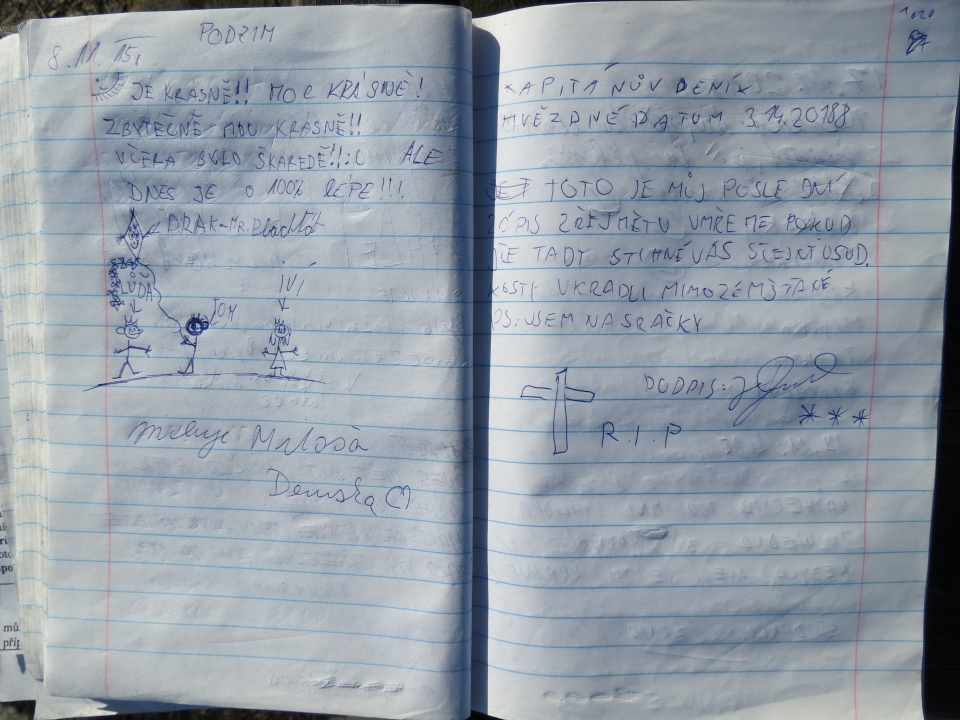 PODZIM
8.11.15,
JE KRÁSNĚ!! MOC KRÁSNĚ!
ZBYTEČNĚ MOC KRÁSNĚ!!
VČERA BYLO ŠKAREDĚ!!:( ALE
DNES JE O 100% LÉPE!!!
DRAK-MR.
LUĎA
TOM
IVÍ
miluje Miloša
Deniska
KAPITÁNŮV DENÍK
HVĚZDNÉ DATUM 3.14.20188
TOTO JE MŮJ POSLEDNÍ
ZÁPIS ZŘEJMĚ TU UMŘEME POKUD
JSTE TADY STIHNE VÁS STEJNÝ OSUD.
KOSTI UKRADLI MIMOZEMŠŤANÉ
PS: JSEM NA SRAČKY
PODPIS:
***
R.I.P